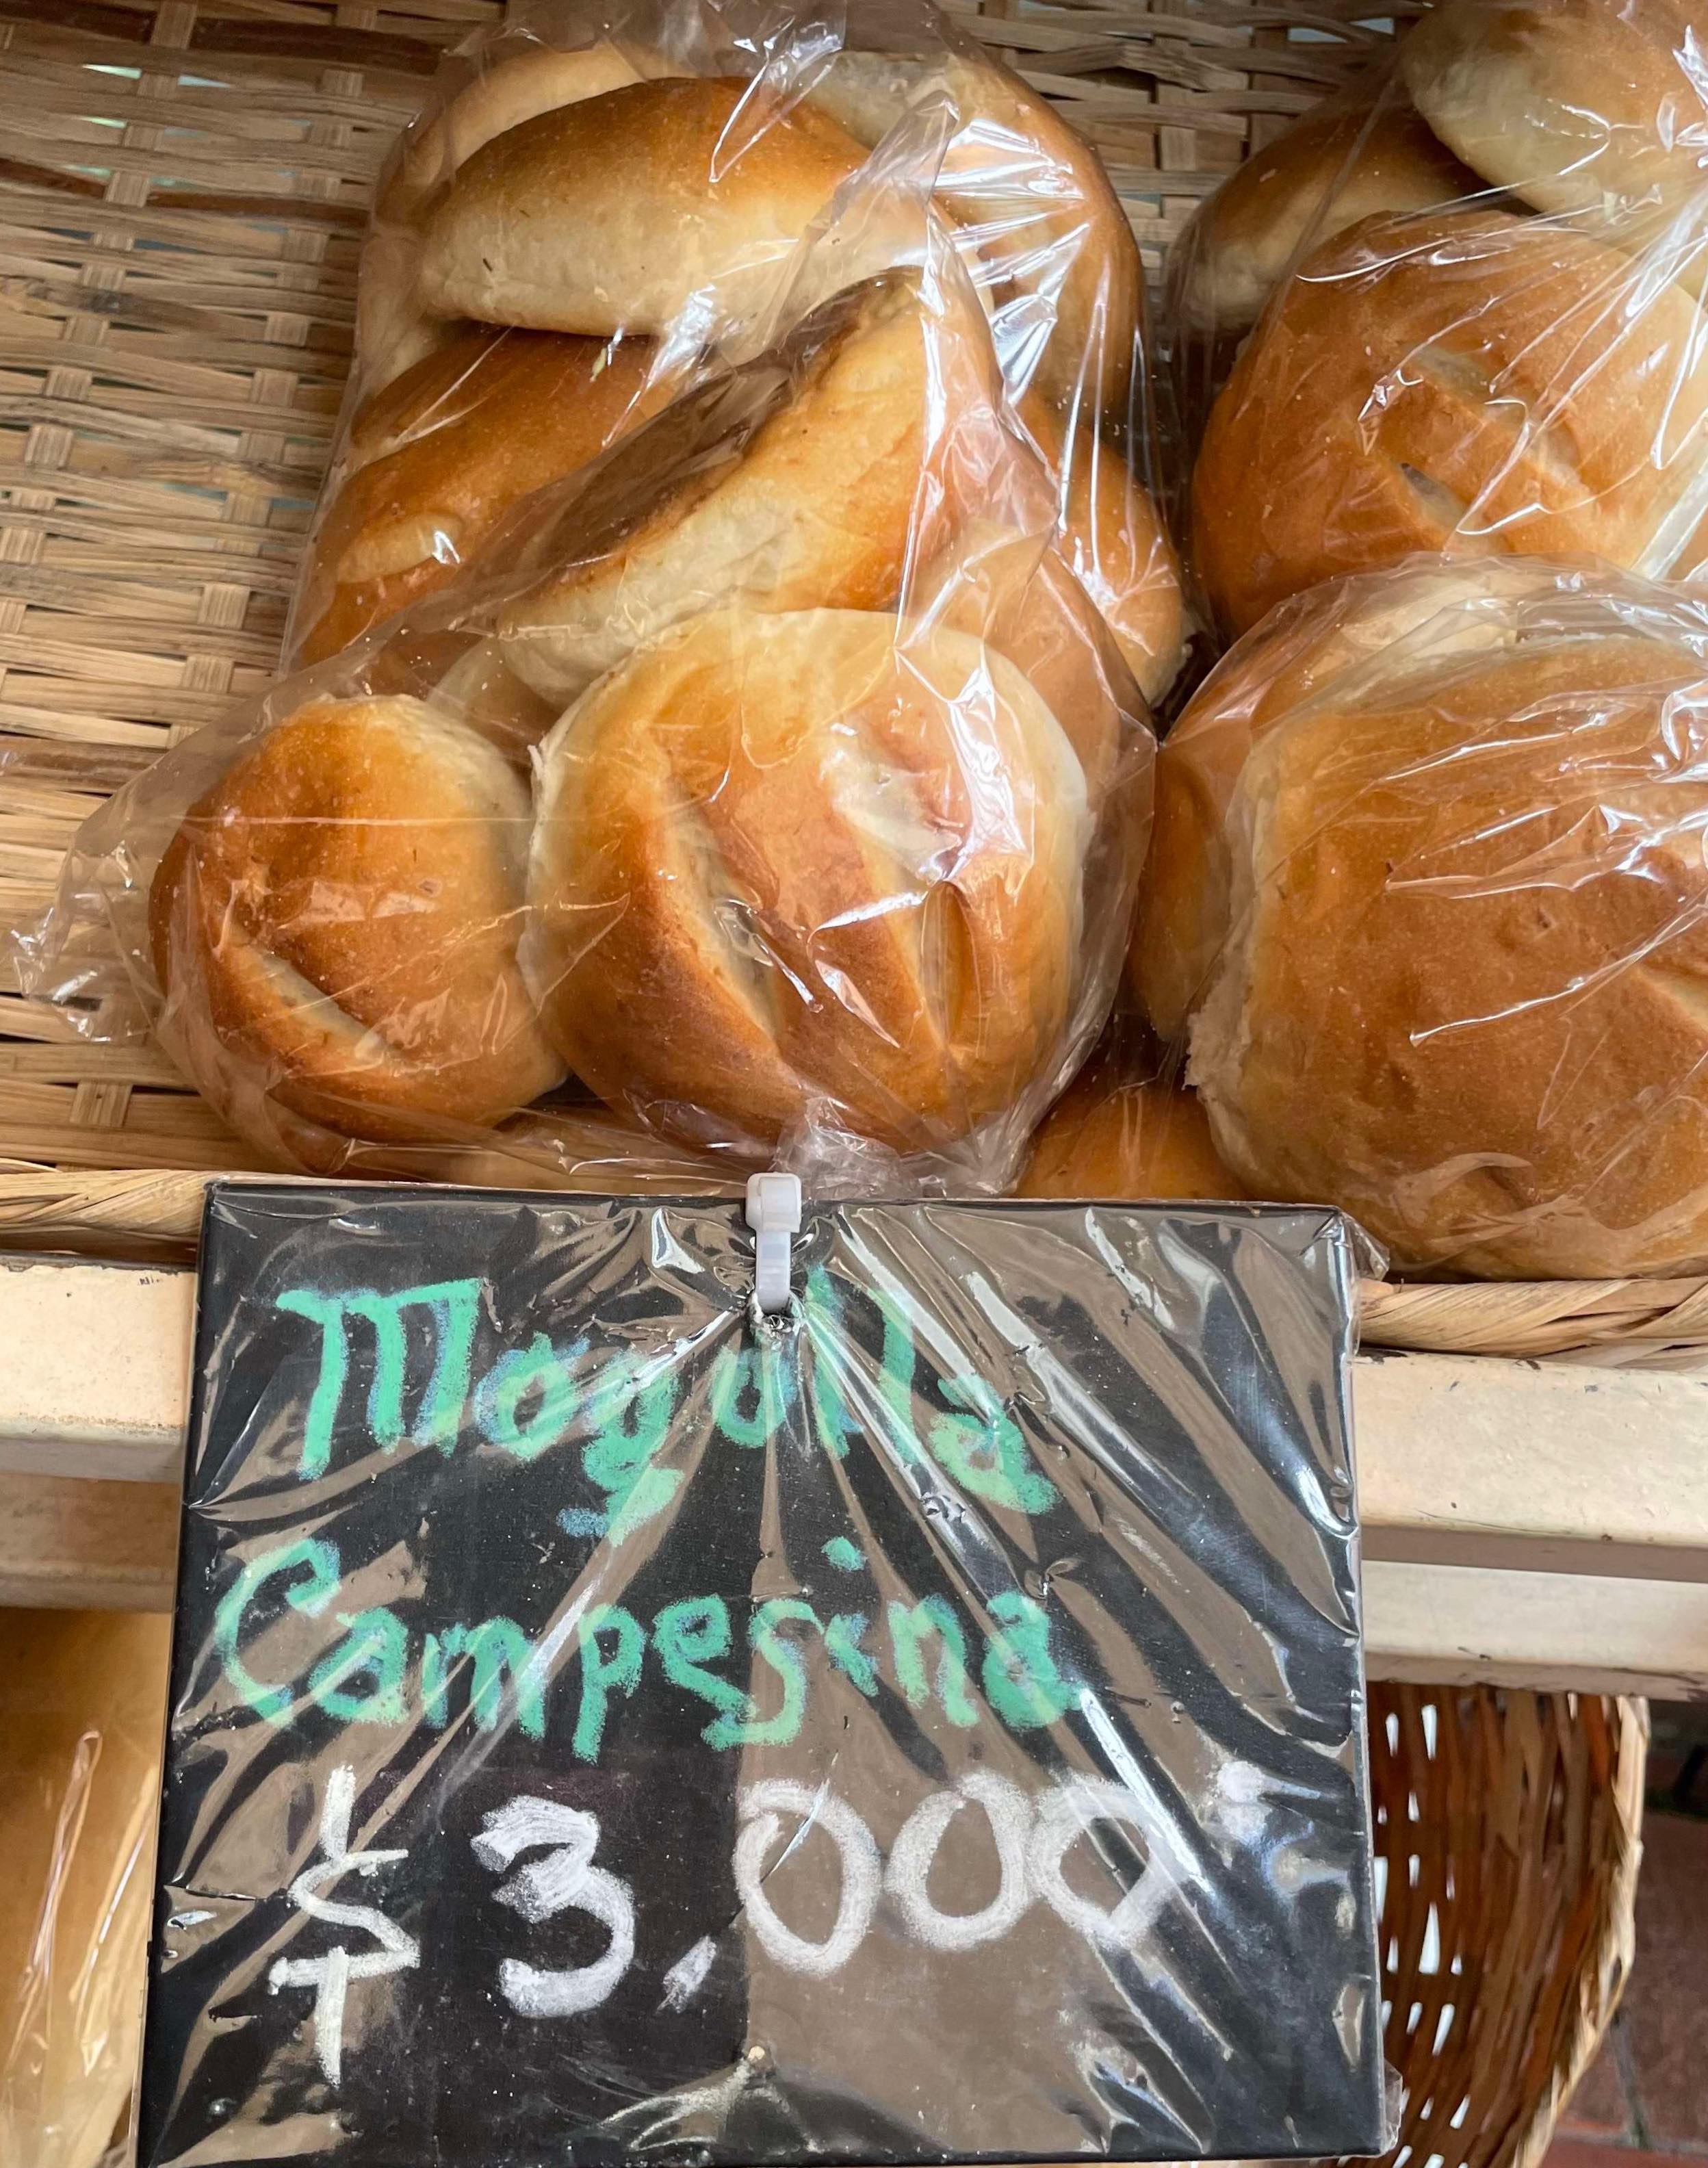 Mogolla
Campesina
$ 3,000